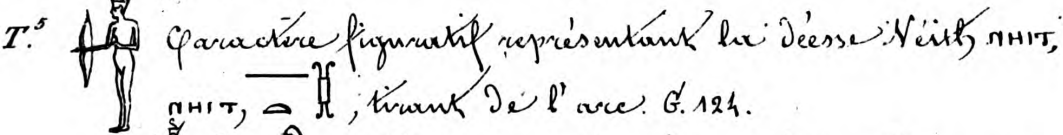 T.⁵ Caractère figuratif représentant la déesse Néith, ⲚⲎⲒⲦ,
ⲚⲎⲒⲦ, , tirant de l'arc. G. 124.